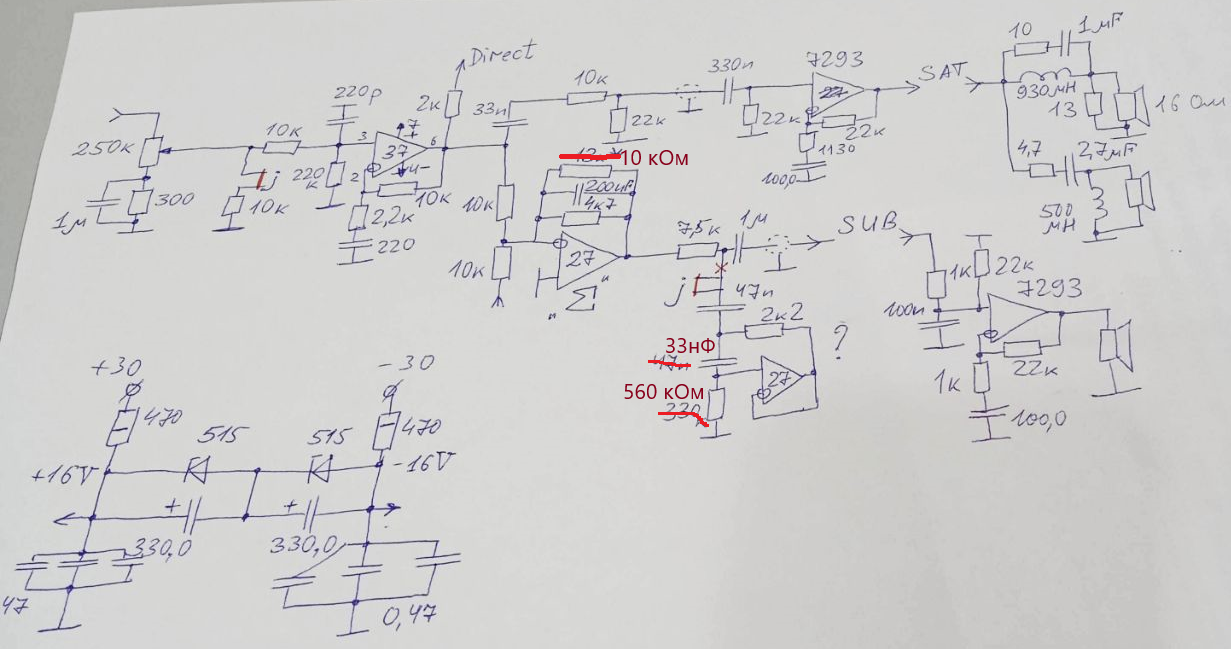 Direct
220p
2к
33n
10к
330n
7293
27
SAT
10
1μF
930мН
13
16 Ом
250к
10к
3
7
6
37
2
4-
22к
22к
22к
1130
100,0
4,7
2,7μF
500
мН
1м
300
j
10к
220
к
10к
2,2к
220
10 кОм
200nF
4к7
10к
10к
27
"Σ"
7,5к
1м
SUB
j
47n
2к2
33нФ
47n
560 кОм
330к
27
?
1к
22к
7293
100n
22к
1к
100,0
+30
-30
470
515
515
470
+16V
-16V
+
+
330,0
330,0
47
0,47